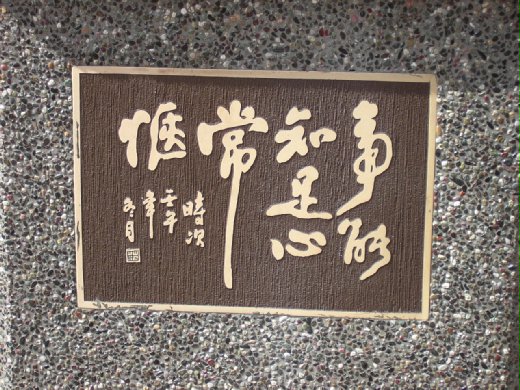 事能
知足心
常
愜
時次
壬午
年
冬月